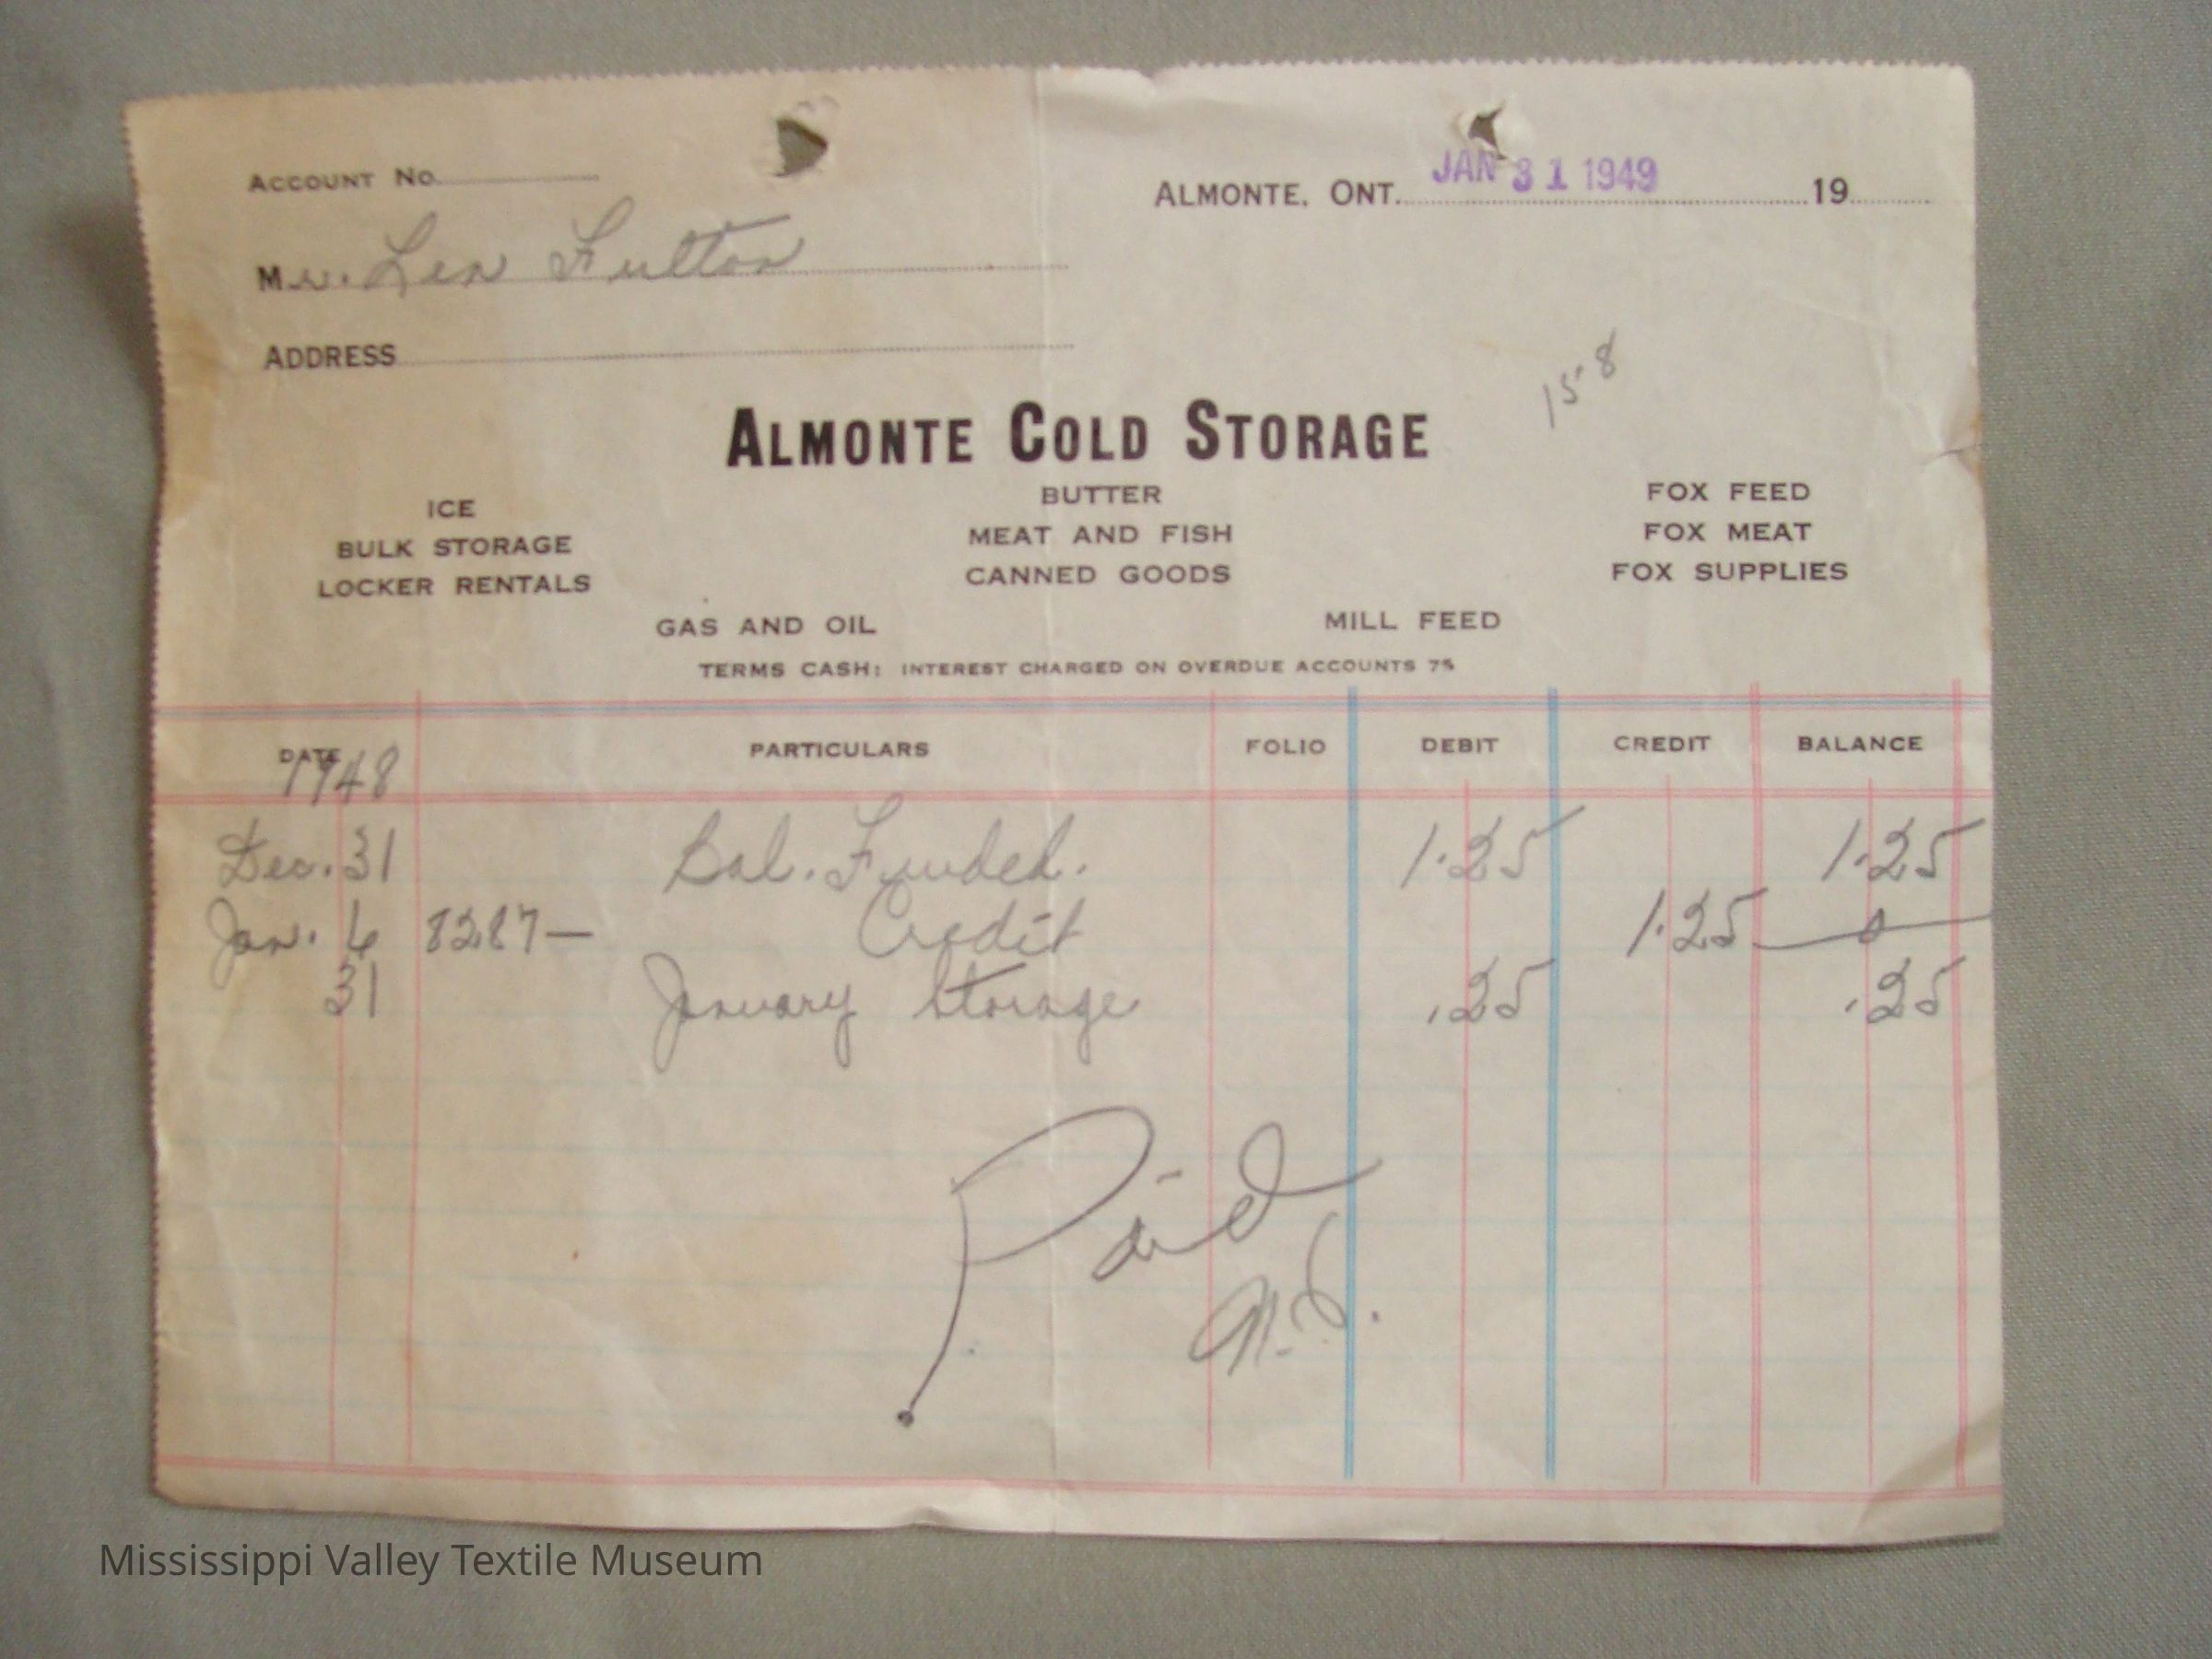 ACCOUNT No.
ALMONTE, ONT. JAN 31 1949 19
Mr. Len Fulton
ADDRESS
15-8
ALMONTE COLD STORAGE
ICE
BULK STORAGE
LOCKER RENTALS
BUTTER
MEAT AND FISH
CANNED GOODS
FOX FEED
FOX MEAT
FOX SUPPLIES
GAS AND OIL MILL FEED
TERMS CASH: INTEREST CHARGED ON OVERDUE ACCOUNTS 7%
DATE PARTICULARS FOLIO DEBIT CREDIT BALANCE
1948
Dec. 31 Bal. Fwded. 1.25 1.25
Jan. 6 8287— Credit 1.25 0
31 January Storage .25 .25
Paid
Mississippi Valley Textile Museum